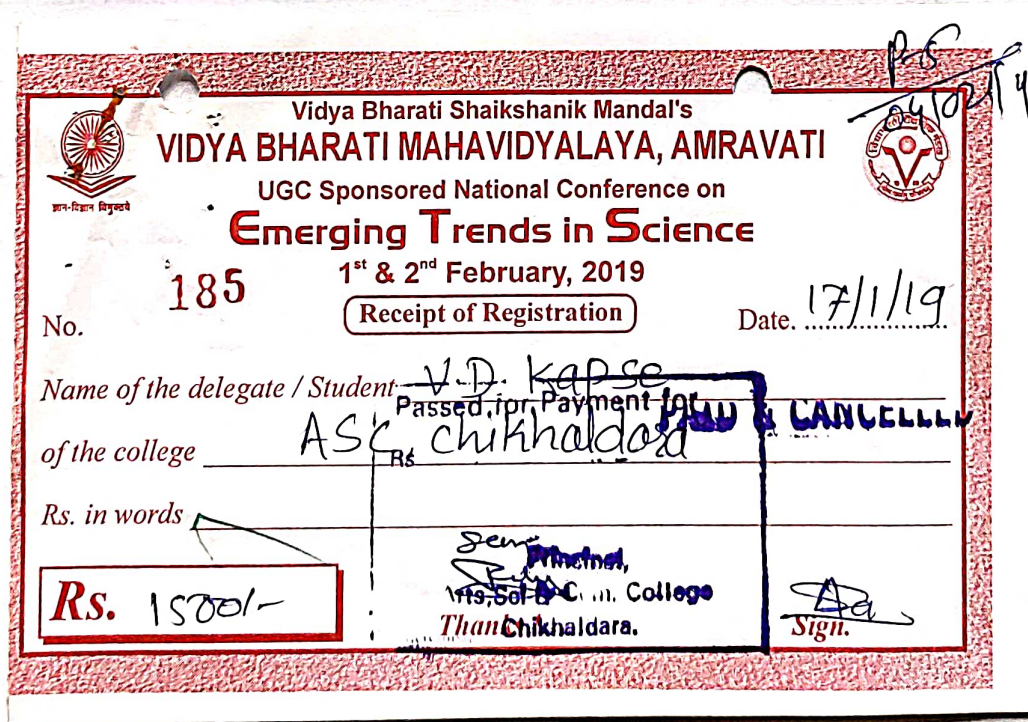 P-5
04/02/19
Vidya Bharati Shaikshanik Mandal's
VIDYA BHARATI MAHAVIDYALAYA, AMRAVATI
UGC Sponsored National Conference on
Emerging Trends in Science
1st & 2nd February, 2019
ज्ञान-विज्ञान विमुक्तये
No. 185
Receipt of Registration
Date. 17/1/19
Name of the delegate / Student V.D. Kapse
Passed for Payment for
PAID & CANCELLED
of the college ASC chikhaldara
Rs
Rs. in words
Principal,
Arts, Sci & Com. College
Chikhaldara.
Rs. 1500/-
Sign.